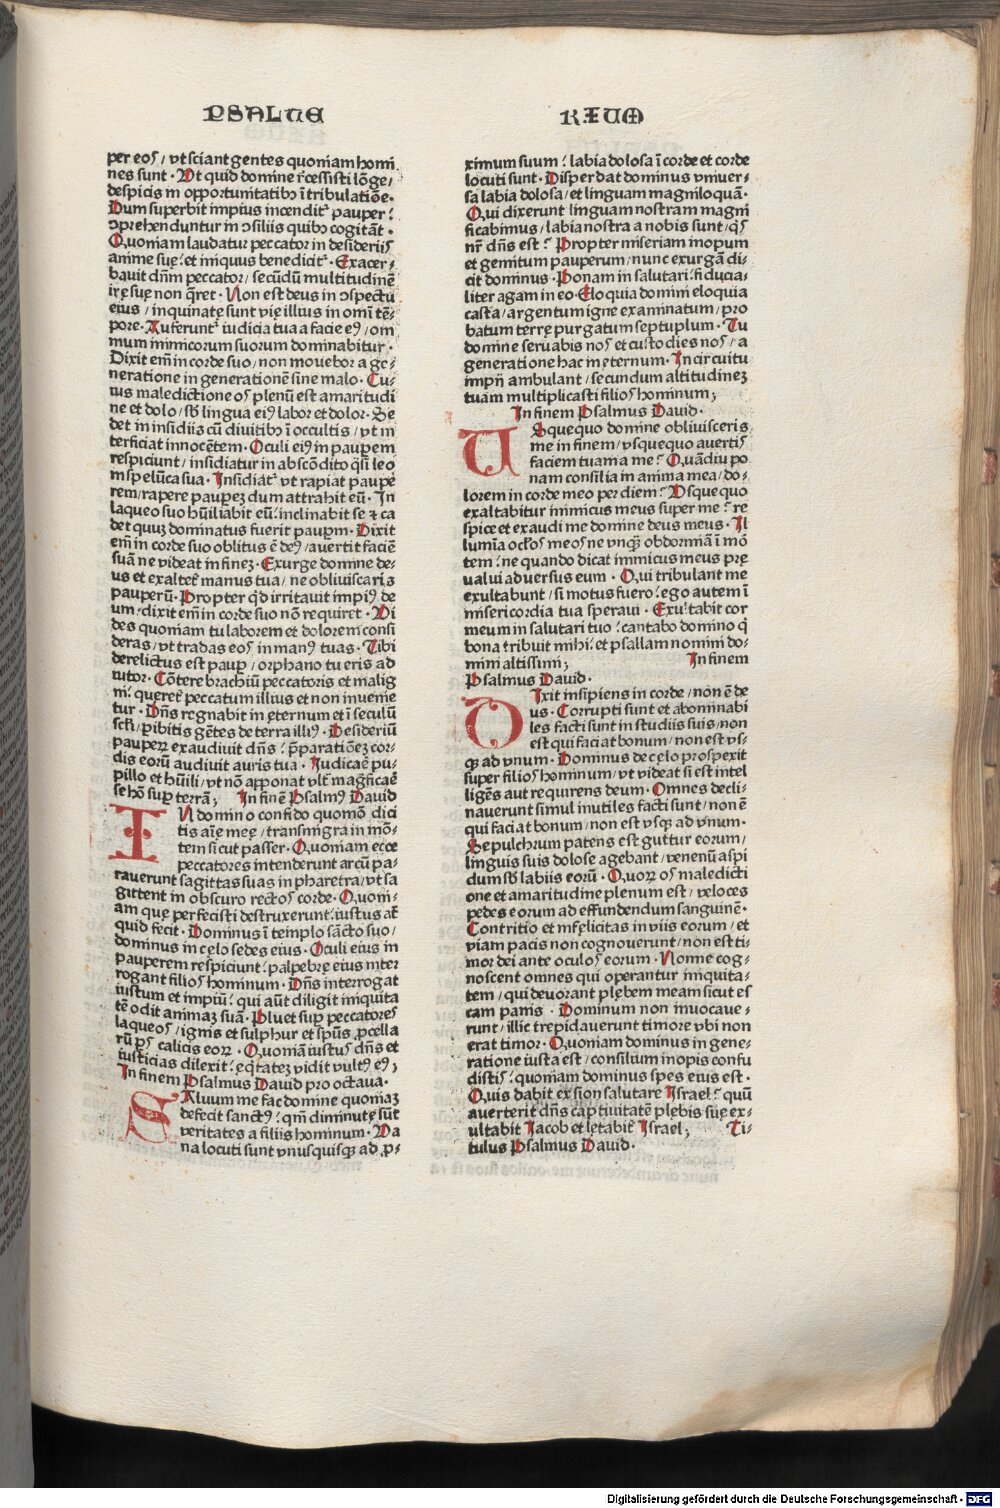 PSALTE
RIUM
per eos / vt sciant gentes quoniam homi
nes sunt · Ut quid domine r̄cessisti lōge /
despicis in opportunitatibꝫ ī tribulatiōe ·
Dum superbit impius incendit᷑ pauper :
ↄprehenduntur in ↄsiliis quibꝫ cogitāt ·
Quoniam laudatur peccator in desideriis
anime suę : et iniquus benedicit᷑ · Exacer-
bauit dn̄m peccator / secūdū multitudinē
irę suę non q̄ret · Non est deus in ↄspectu
eius / inquinatę sunt vię illius in omī tē-
pore · Auferunt᷑ iudicia tua a facie eiꝰ / om
nium inimicorum suorum dominabitur ·
Dixit em̄ in corde suo / non mouebor a ge-
neratione in generationē sine malo · Cu-
ius maledictione os plenū est amaritudi
ne et dolo / sb̄ lingua eiꝰ labor et dolor · Se
det in insidiis cū diuitibꝫ ī occultis / vt in
terficiat innocētem · Oculi eiꝰ in pauꝑem
respiciunt / insidiatur in abscōdito q̄si leo
in spelūca sua · Insidiat᷑ vt rapiat pauꝑe
rem / rapere pauꝑeꝫ dum attrahit eū · In
laqueo suo hūiliabit eū : inclinabit se ⁊ ca
det quuꝫ dominatus fuerit pauꝑm · Dixit
em̄ in corde suo oblitus ē deꝰ / auertit faciē
suā ne videat in fineꝫ · Exurge domine de-
us et exaltet᷑ manus tua / ne obliuiscaris
pauperū · Propter qd̄ irritauit impiꝰ de
um / dixit em̄ in corde suo nō requiret · Vi
des quoniam tu laborem et dolorem consi
deras / vt tradas eos in manꝰ tuas · Tibi
derelictus est pauꝑ / orphano tu eris ad
iutor · Cōtere brachiū peccatoris et malig
ni : queret᷑ peccatum illius et non inuenie
tur · Dn̄s regnabit in ęternum et ī seculū
scl̄i / ꝑibitis gētes de terra illiꝰ · Desideriū
pauperꝝ exaudiuit dn̄s : p̄parationeꝫ cor-
dis eorū audiuit auris tua · Iudicare pu-
pillo et hūili / vt nō apponat vlt᷑ magn̄ficare
se hō suꝑ terrā ; In finē Psalmꝰ Dauid
IN domino confido quomō dici
tis aīę meę / transmigra in mō-
tem sicut passer · Quoniam ecce
peccatores intenderunt arcū pa-
rauerunt sagittas suas in pharetra / vt sa
gittent in obscuro rectos corde · Quoni-
am quę perfecisti destruxerunt : iustus aūt
quid fecit · Dominus ī templo sācto suo /
dominus in cęlo sedes eius · Oculi eius in
pauperem respiciunt : palpebrę eius inter
rogant filios hominum · Dn̄s interrogat
iustum et impiū : qui aūt diligit iniquita
tē odit animaꝫ suā · Pluet suꝑ peccatores
laqueos / ignis et sulphur et spūs ꝓcella
rū ꝑs calicis eorꝝ · Quoniā iustus dn̄s et
iusticias dilexit : eq̄tateꝫ vidit vultꝰ eiꝰ ;
In finem Psalmus Dauid pro octaua ·
SAluum me fac domine quoniaꝫ
defecit sanctꝰ : qm̄ diminutę sūt
veritates a filiis hominum · Va
na locuti sunt vnusquisqꝫ ad ꝓ-
ximum suum : labia dolosa ī corde et corde
locuti sunt · Disperdat dominus vniuer-
sa labia dolosa / et linguam magniloquā ·
Qui dixerunt linguam nostram magni
ficabimus / labia nostra a nobis sunt / qs̄
nr̄ dn̄s est : Propter miseriam inopum
et gemitum pauperum / nunc exurgā di-
cit dominus · Ponam in salutari : fiducia-
liter agam in eo · Eloquia domini eloquia
casta / argentum igne examinatum / pro
batum terrę purgatum septuplum · Tu
domine seruabis nos et custodies nos / a
generatione hac in ęternum · In circuitu
impii ambulant / secundum altitudineꝫ
tuam multiplicasti filios hominum ;
In finem Psalmus Dauid ·
USquequo domine obliuisceris
me in finem / vsquequo auertis
faciem tuam a me : Quādiu po
nam consilia in anima mea / do-
lorem in corde meo per diem : Usquequo
exaltabitur inimicus meus super me : re
spice et exaudi me domine deus meus · Il
lumīa ocl̄os meos ne vnqꝫ obdormiā ī mō
tem : ne quando dicat inimicus meus prę
ualui aduersus eum · Qui tribulant me
exultabunt / si motus fuero : ego autem ī
misericordia tua speraui · Exultabit cor
meum in salutari tuo : cantabo domino q̄
bona tribuit mihi : et psallam nomini do-
mini altissimi ; In finem
Psalmus Dauid ·
DIxit insipiens in corde / non ē de
us · Corrupti sunt et abominabi
les facti sunt in studiis suis / non
est qui faciat bonum / non est vs-
qꝫ ad vnum · Dominus de cęlo prospexit
super filios hominum / vt videat si est intel
ligēs aut requirens deum · Omnes decli-
nauerunt simul inutiles facti sunt / non ē
qui faciat bonum / non est vsqꝫ ad vnum ·
Sepulchrum patens est guttur eorum /
linguis suis dolose agebant / venenū aspi
dum sb̄ labiis eorū · Quorꝝ os maledicti
one et amaritudine plenum est / veloces
pedes eorum ad effundendum sanguinē ·
Contritio et infęlicitas in viis eorum / et
viam pacis non cognouerunt / non est ti-
mor dei ante oculos eorum · Nonne cog-
noscent omnes qui operantur iniquita-
tem / qui deuorant plębem meam sicut es
cam panis · Dominum non inuocaue-
runt / illic trepidauerunt timore vbi non
erat timor · Quoniam dominus in gene-
ratione iusta est / consilium inopis confu
distis : quoniam dominus spes eius est ·
Quis dabit ex sion salutare Israel : quū
auerterit dn̄s captiuitatē plębis suę ex-
ultabit Jacob et lętabit᷑ Israel ; Ti-
tulus Psalmus Dauid ·
Digitalisierung gefördert durch die Deutsche Forschungsgemeinschaft - DFG